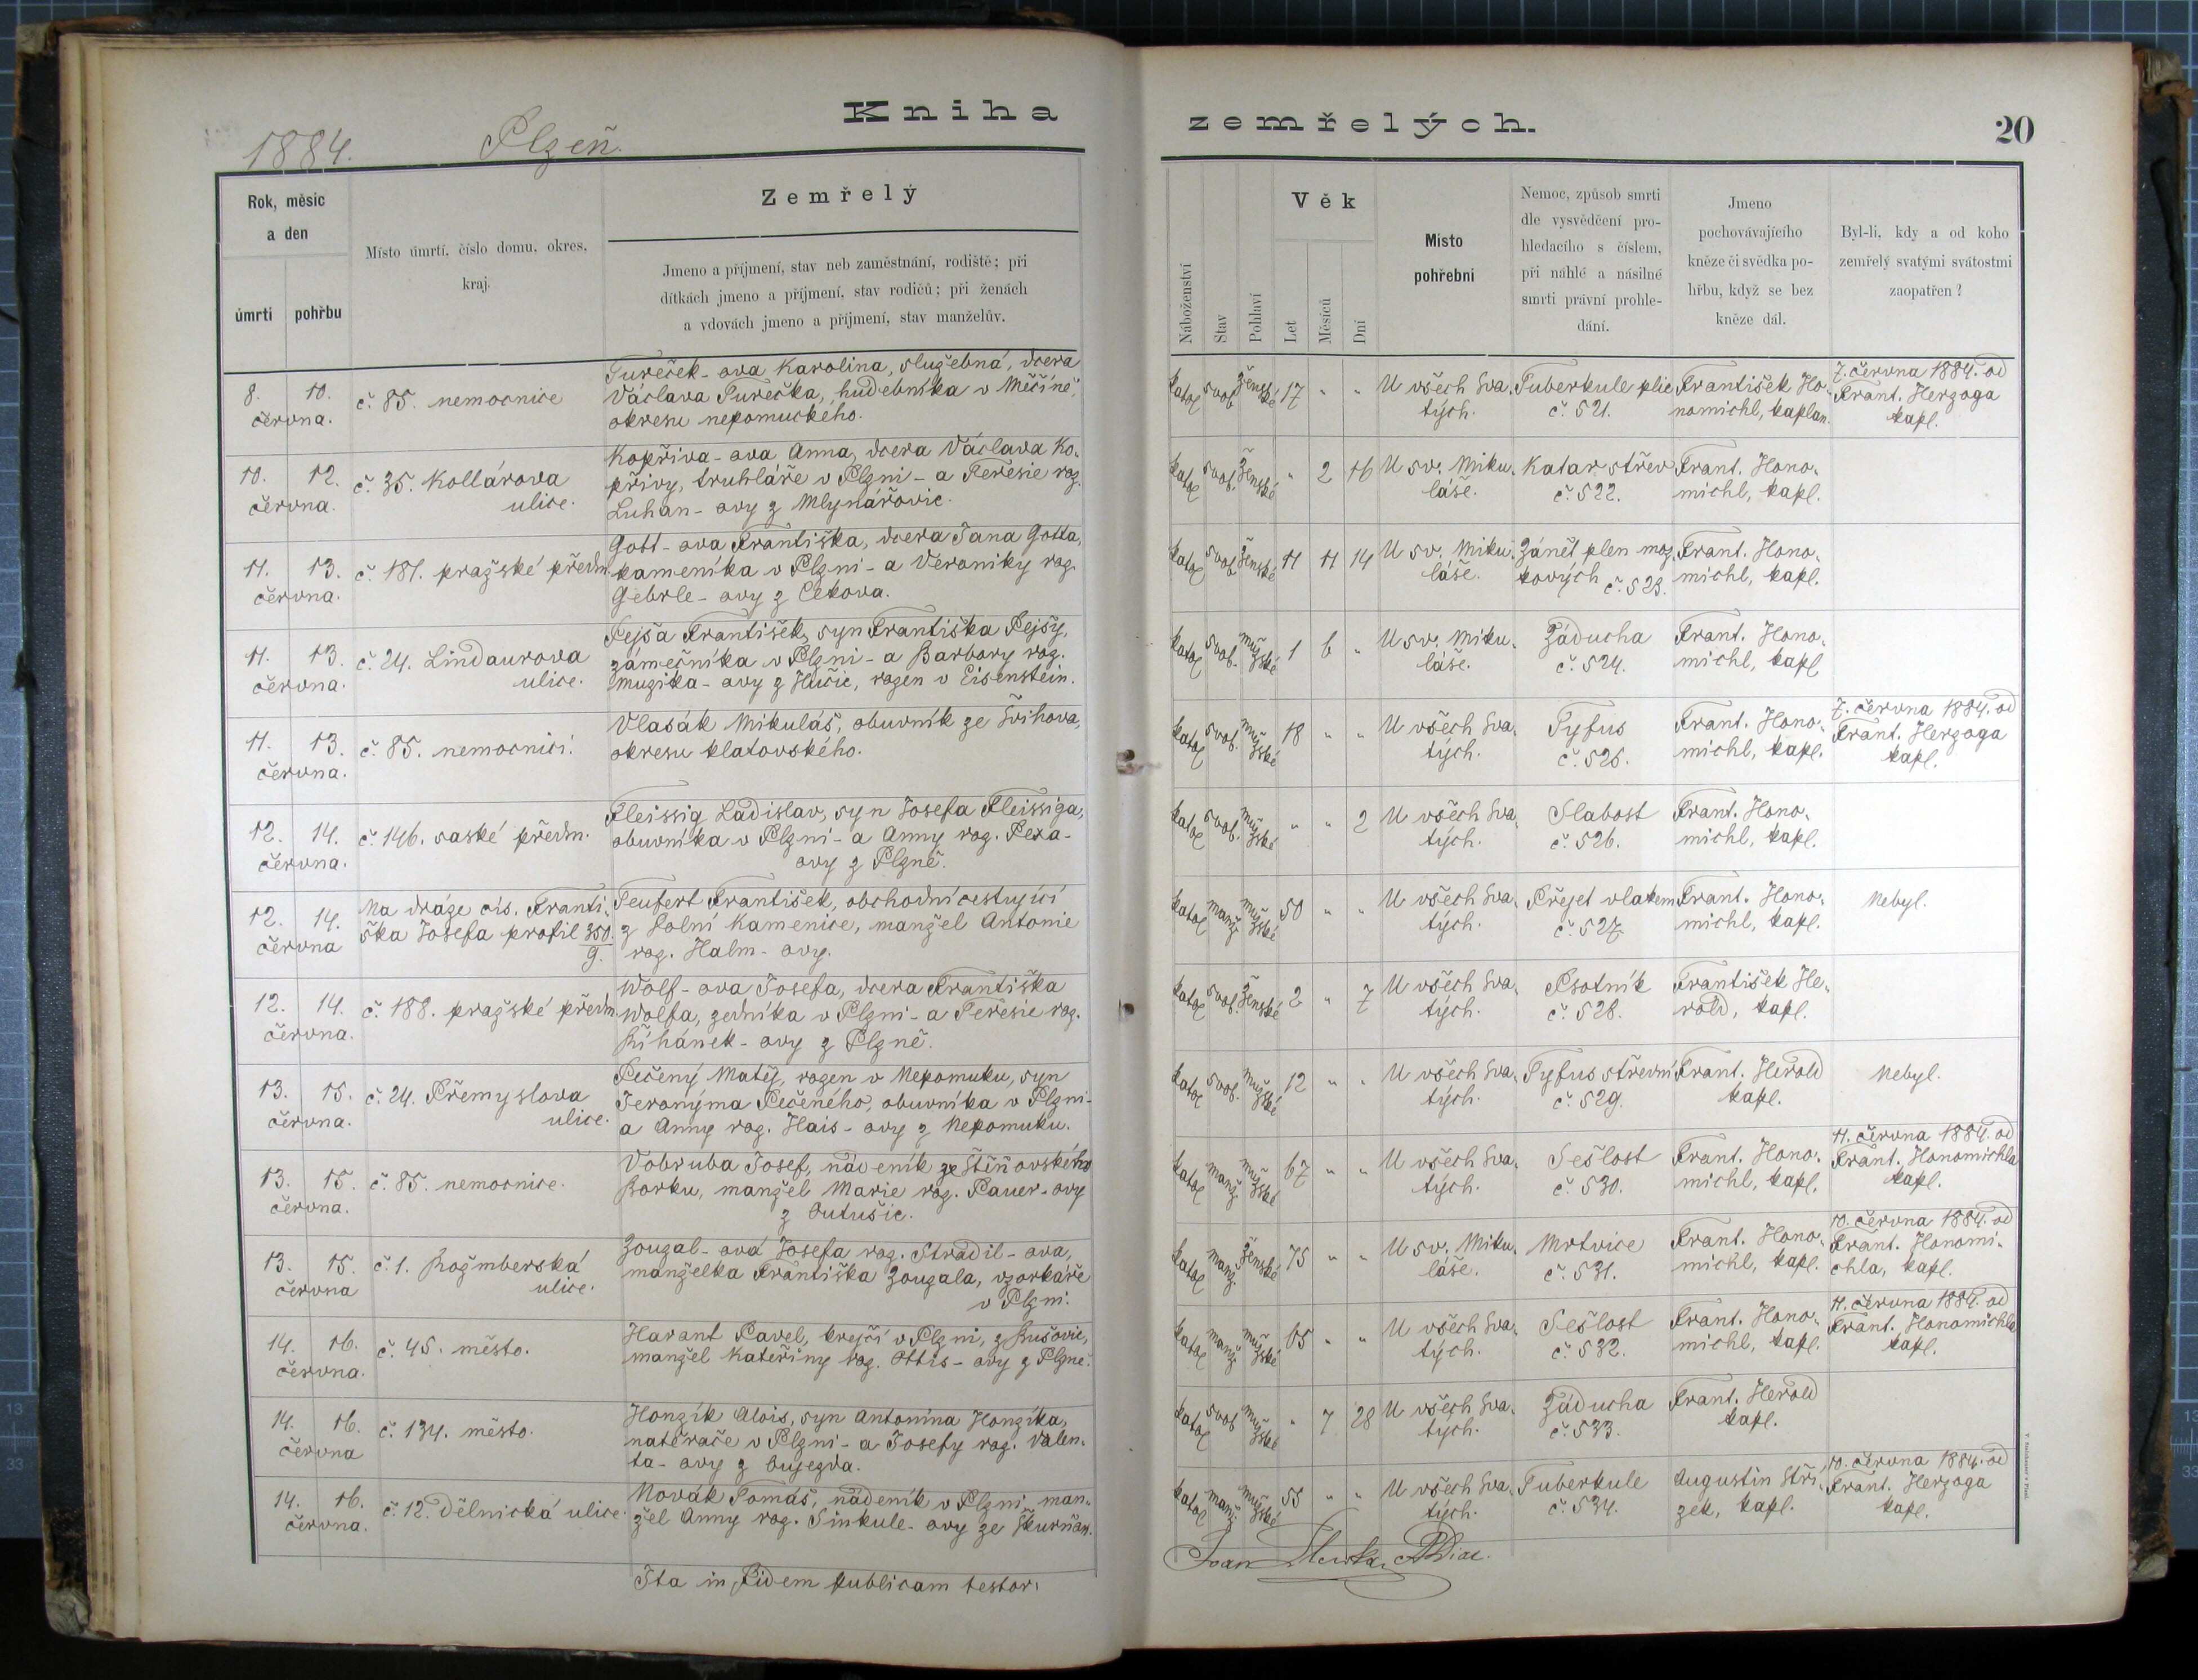 Kniha zemřelých.
20
1884. Plzeň.
Rok, měsíc
a den
úmrtí
pohřbu
Místo úmrtí, číslo domu, okres,
kraj.
Zemřelý
Jmeno a příjmení, stav neb zaměstnání, rodiště; při
dítkách jmeno a příjmení, stav rodičů; při ženách
a vdovách jmeno a příjmení, stav manželův.
Náboženství
Stav
Pohlaví
Věk
Let
Měsíců
Dní
Místo
pohřební
Nemoc, způsob smrti
dle vysvědčení pro-
hledacího s číslem,
při náhlé a násilné
smrti právní prohle-
dání.
Jmeno
pochovávajícího
kněze či svědka po-
hřbu, když se bez
kněze dál.
Byl-li, kdy a od koho
zemřelý svatými svátostmi
zaopatřen?
8. 10.
června.
č. 85. nemocnice
Tureček-ova Karolina, služebná, dcera
Václava Turečka, hudebníka v Mečíně,
okresu nepomuckého.
katol svob ženské 17 " "
U všech Sva-
tých.
Tuberkule plic
č. 521.
František Ho-
nomichl, kaplan.
7. června 1884. od
Frant. Herzoga
kapl.
10. 12.
června.
č. 35. Kollárova
ulice.
Kopřiva-ova Anna, dcera Václava Ko-
přivy, truhláře v Plzni-a Teresie roz.
Luhan-ovy z Mlynářovic.
katol svob. ženské " 2 16
U sv. Miku-
láše.
Katar střev
č. 522.
Frant. Hono-
michl, kapl.
11. 13.
června.
č. 181. pražské předm.
Gott-ova Františka, dcera Jana Gotta,
kameníka v Plzni-a Veroniky roz.
Gebrle-ovy z Cekova.
katol svob ženské 11 11 14
U sv. Miku-
láše.
Zánět plen moz-
kových č. 523.
Frant. Hono-
michl, kapl.
11. 13.
června.
č. 24. Lindaurova
ulice.
Pejša František, syn Františka Pejšy,
zámečníka v Plzni-a Barbory roz.
Muzika-ovy z Hučic, rozen v Eisenstein.
katol svob. mužské 1 6 "
U sv. Miku-
láše.
Záducha
č. 524.
Frant. Hono-
michl, kapl
11. 13.
června.
č. 85. nemocnici.
Vlasák Mikuláš, obuvník ze Švihova,
okresu klatovského.
katol svob. mužské 18 " "
U všech Sva-
tých.
Tyfus
č. 525.
Frant. Hono-
michl, kapl.
7. června 1884. od
Frant. Herzoga
kapl.
12. 14.
června.
č. 146. saské předm.
Fleissig Ladislav, syn Josefa Fleissiga,
obuvníka v Plzni-a Anny roz. Pexa-
ovy z Plzně.
katol svob. mužské " " 2
U všech Sva-
tých.
Slabost
č. 526.
Frant. Hono-
michl, kapl.
12. 14.
června
Na dráze cís. Franti-
ška Josefa profil 350.
9.
Teufert František, obchodní cestující
z Dolní Kamenice, manžel Antonie
roz. Halm-ovy.
katol manž mužské 50 " "
U všech Sva-
tých.
Přejet vlakem
č. 527
Frant. Hono-
michl, kapl.
Nebyl.
12. 14.
června.
č. 188. pražské předm.
Wolf-ova Josefa, dcera Františka
Wolfa, zedníka v Plzni-a Teresie roz.
Řihánek-ovy z Plzně.
katol svob. ženské 2 " 7
U všech Sva-
tých.
Psotník
č. 528.
František He-
rold, kapl.
13. 15.
června.
č. 24. Přemyslova
ulice.
Pečený Matěj, rozen v Nepomuku, syn
Jeronýma Pečeného, obuvníka v Plzni-
a Anny roz. Hais-ovy z Nepomuku.
katol svob. mužské 12 " "
U všech Sva-
tých.
Tyfus střevní
č. 529.
Frant. Herold
kapl.
Nebyl.
13. 15.
června.
č. 85. nemocnice.
Vobruba Josef, nádeník ze Štěňovského
Borku, manžel Marie roz. Pauer-ovy
z Outušic.
katol manž. mužské 67 " "
U všech Sva-
tých.
Sešlost
č. 530.
Frant. Hono-
michl, kapl.
11. června 1884. od
Frant. Honomichla
kapl.
13. 15.
června
č. 1. Rožmberská
ulice.
Zougal-ová Josefa roz. Stradil-ova,
manželka Františka Zougala, vzorkáře
v Plzni.
katol manž. ženské 75 " "
U sv. Miku-
láše.
Mrtvice
č. 531.
Frant. Hono-
michl, kapl.
10. června 1884. od
Frant. Honomi-
chla, kapl.
14. 16.
června.
č. 45. město.
Harant Pavel, krejčí v Plzni, z Bušovic,
manžel Kateřiny roz. Ottis-ovy z Plzně.
katol manž mužské 65 " "
U všech Sva-
tých.
Sešlost
č. 532.
Frant. Hono-
michl, kapl.
11. června 1884. od
Frant. Honomichla
kapl.
14. 16.
června
č. 134. město.
Honzík Alois, syn Antonína Honzíka,
natěrače v Plzni-a Josefy roz. Valen-
ta-ovy z Oujezda.
katol svob mužské " 7 28
U všech Sva-
tých.
Záducha
č. 533.
Frant. Herold
kapl.
14. 16.
června.
č. 12. Dělnická ulice.
Novák Tomáš, nádeník v Plzni, man-
žel Anny roz. Sinkule-ovy ze Skurňan.
katol manž. mužské 55 " "
U všech Sva-
tých.
Tuberkule
č. 534.
Augustin Stří-
zek, kapl.
10. června 1884. od
Frant. Herzoga
kapl.
Ita in fidem publicam testor: